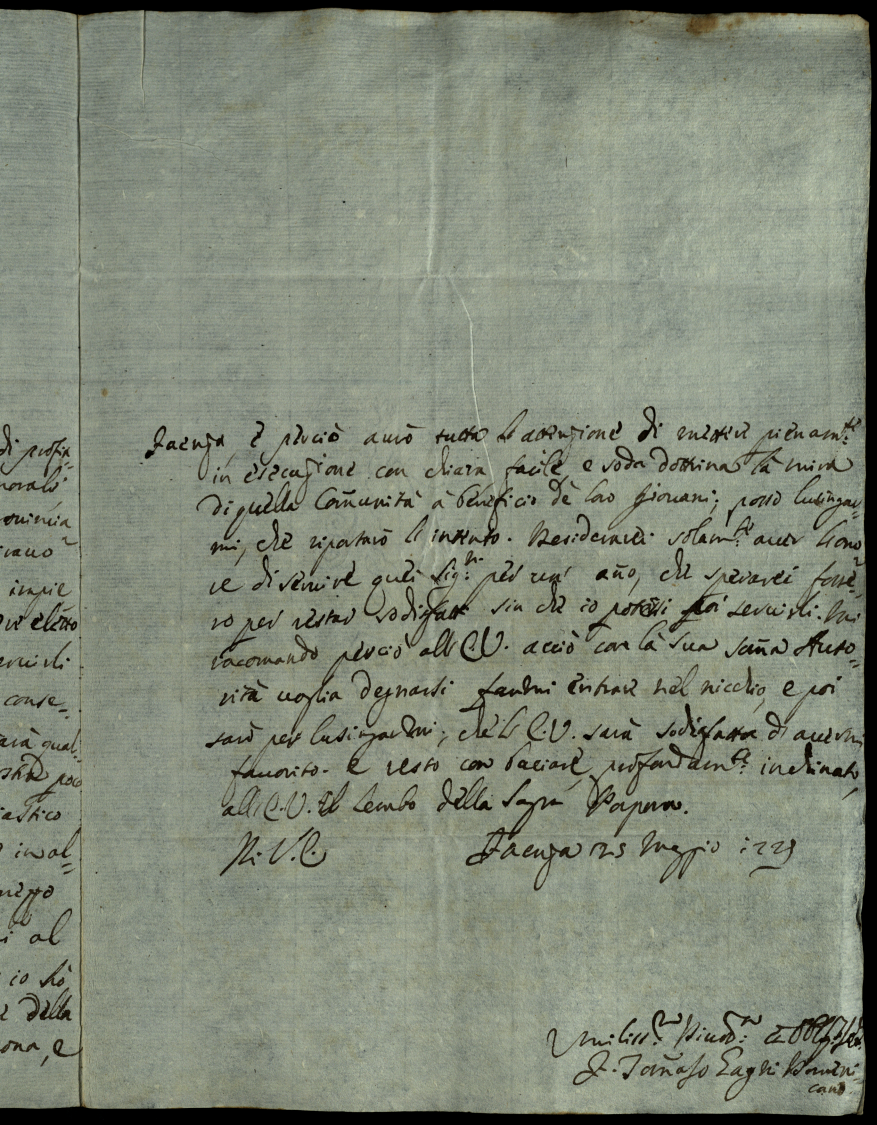 di profit=
morali
ovincia
ivano=
impie
eletto
servirli
conse=
sarà qual=
poco
iastico
in al=
mezzo
i al
io hò
e della
ona, e
Faenza, e perciò avrò tutta l'attenzione di mettere pienam.te
in esecuzione con chiara facile e soda dottrina la mira
di quella Com̃unità à beneficio dè loro Giovani; posso lusingar=
mi, che riportarò l'intento. Desiderarei solam.te aver l'ono=
re di servire quei Sig.ri per un' año, che sperarei fosse=
ro per restar sodisfatti sin che io potessi poi servirli. Mi
racomando perciò all'E.V. acciò con la sua som̃a Auto=
rità voglia degnarsi farmi entrare nel nicchio, e poi
sarò per lusingarmi, che l'E.V. sarà sodisfatta di avermi
favorito. e resto con baciare profondam.te inclinato,
all'E.V. il lembo della Sagra Porpora.
Di V.E. Faenza 25 Maggio 1729
Umiliss.o Divot.o ed Obblig.
F. Tom̃aso Zagni Domeni=
cano